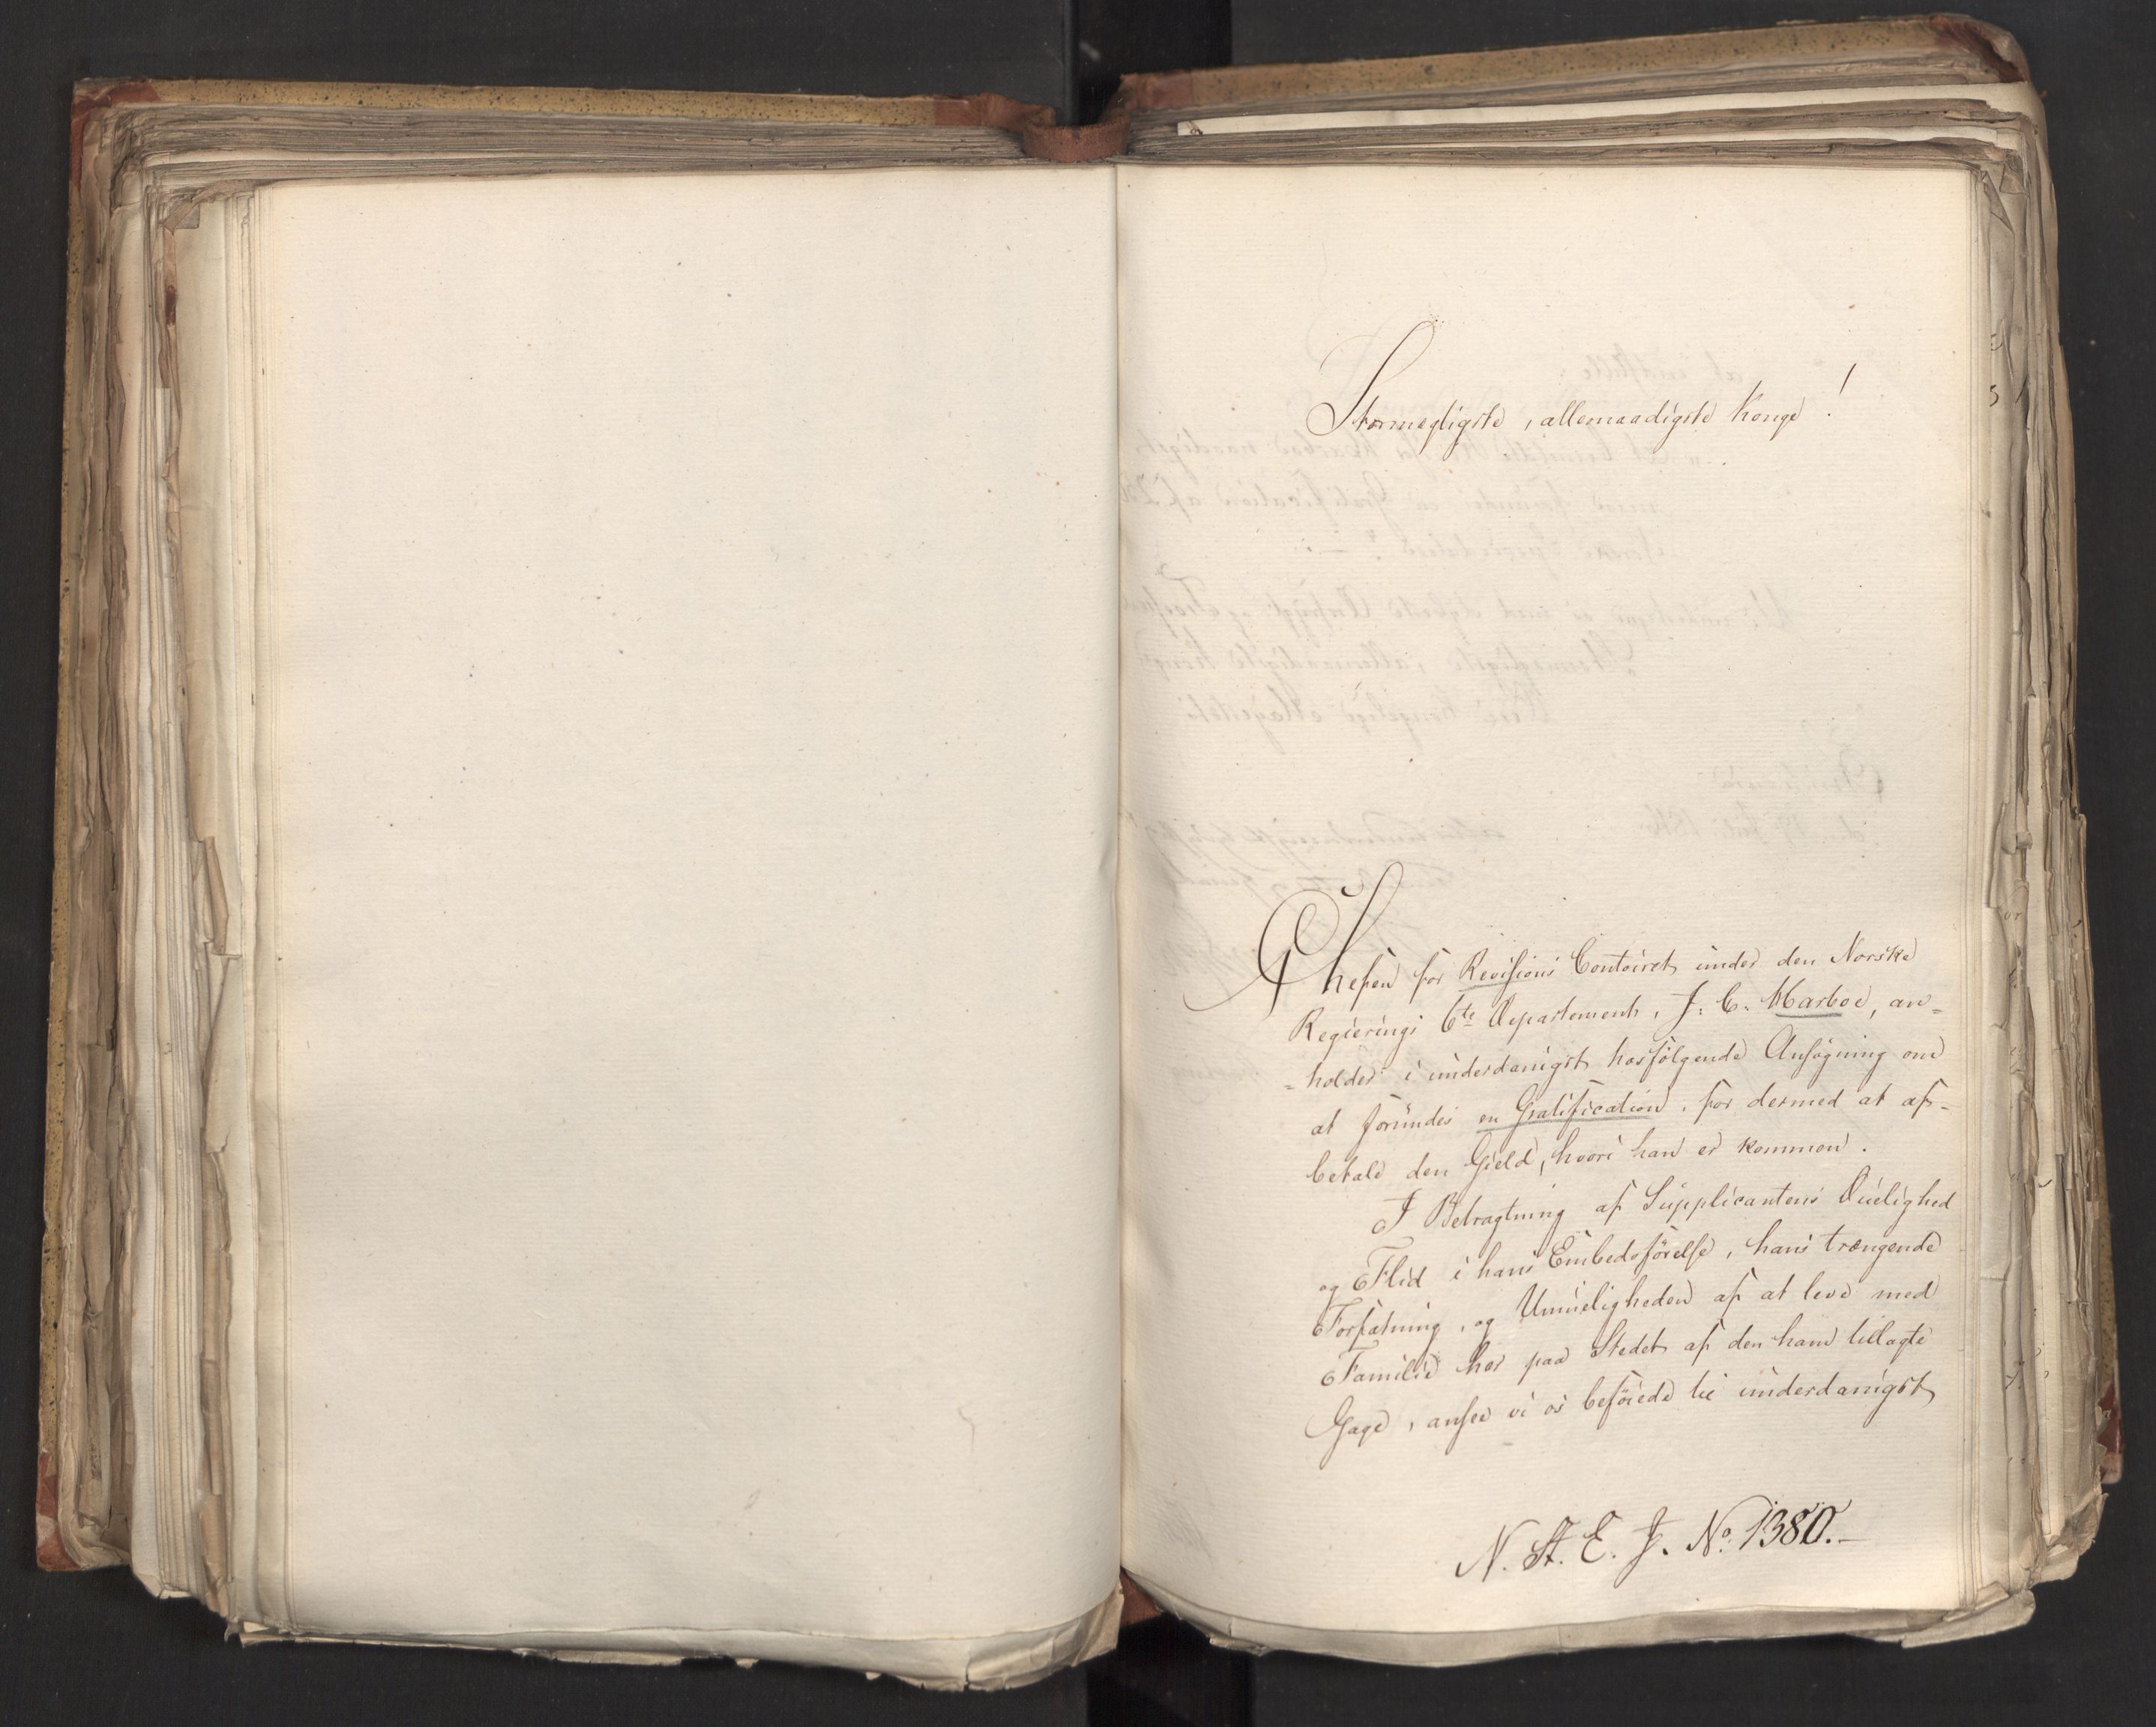 Stormegtigste, allernaadigste Konge!
Chefen for Revisions Contoiret under den Norske
Regierings 6te Departement, J: C. Marboe, an=
=holder i underdanigst hosfølgende Ansøgning om
at forundes en Gratification, for dermed at af=
betale den Gield, hvori han er kommen.
I Betragtning af Supplicantens Duelighed
og Flid i hans Embedsførelse, hans trængende
Forfatning, og Umueligheden af at leve med
Familie her paa Stedet af den ham tillagte
Gage, ansee vi os beføiede til underdanigst
N. St. E. J. No. 1380.-